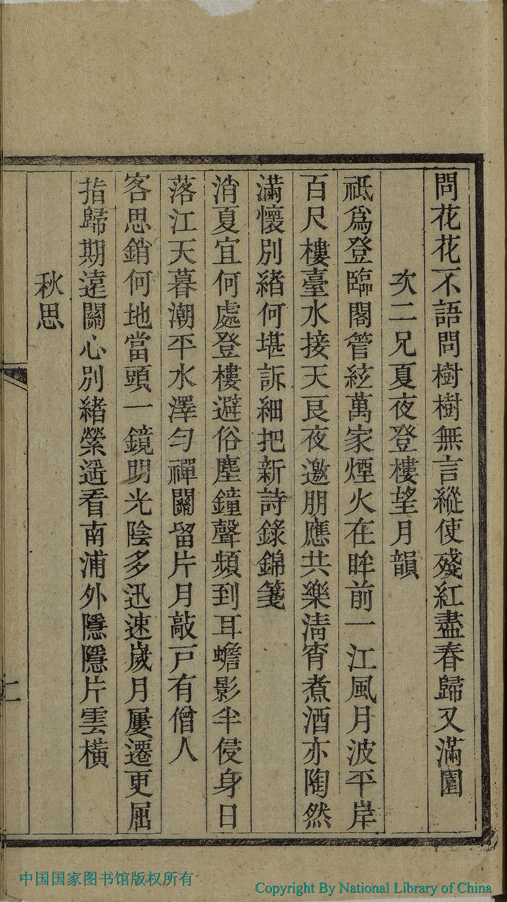 問花花不語問樹樹無言縱使殘紅盡春歸又滿園
次二兄夏夜登樓望月韻
祇爲登臨閣管絃萬家煙火在眸前一江風月波平岸
百尺樓臺水接天良夜邀朋應共樂清宵煮酒亦陶然
滿懷別緒何堪訴細把新詩錄錦箋
消夏宜何處登樓避俗塵鐘聲頻到耳蟾影半侵身日
落江天暮潮平水澤勻禪關留片月敲戸有僧人
客思銷何地當頭一鏡明光陰多迅速歲月屢遷更屈
指歸期遠關心別緒縈遥看南浦外隱隱片雲橫
秋思
二
中国国家图书馆版权所有
Copyright By National Library of China